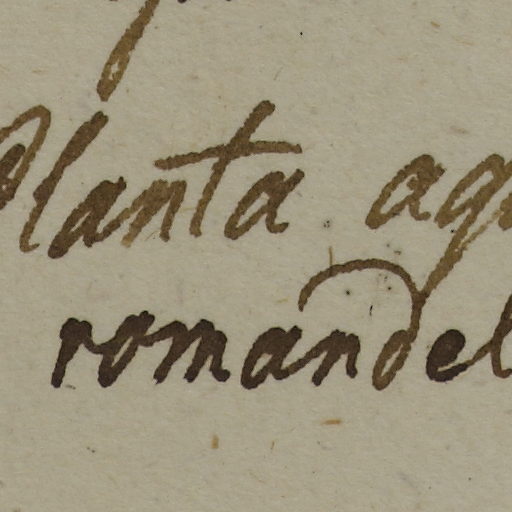 Planta aq
romandel